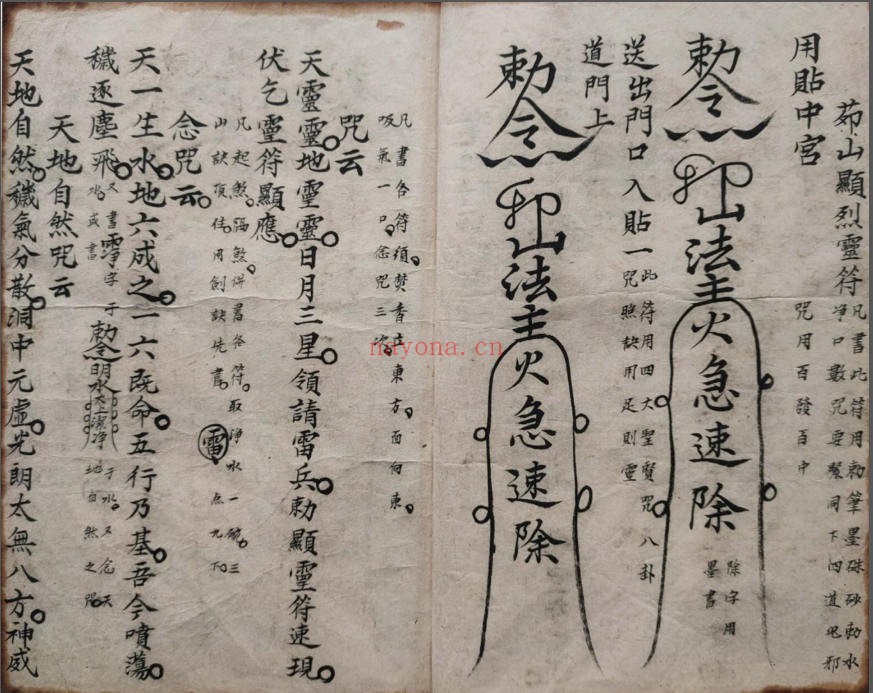 茆山顯烈靈符
凡書此符用勅筆墨硃砂勅水
淨口數咒要幫同下四道
邪
用貼中宮
咒用百發百中
勅令
山法主火急速除
除字用
墨書
送出門口入貼一
此符用四大聖賢咒八卦
咒照訣用足則靈
道門上
勅令
山法主火急速除
凡書各符須焚香在東方面向東
吸氣一口念咒三次
咒云
天靈靈地靈靈日月三星領請雷兵勅顯靈符速現
伏乞靈符顯應
凡起煞隔煞併書各符取淨水一碗三
山訣頂住用劍訣先書
雷
点九下
念咒云
天一生水地六成之一六既命五行乃基吾今噴蕩
穢逐塵飛
又書淨字于
水或書
勅令明水
太上潔淨
于水又念天
地自然之咒
天地自然咒云
天地自然穢氣分散洞中元虛光朗太無八方神威
nayona.cn